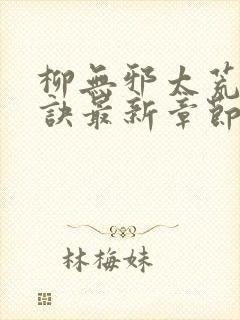 柳無邪太荒
訣最新章節
林梅妹